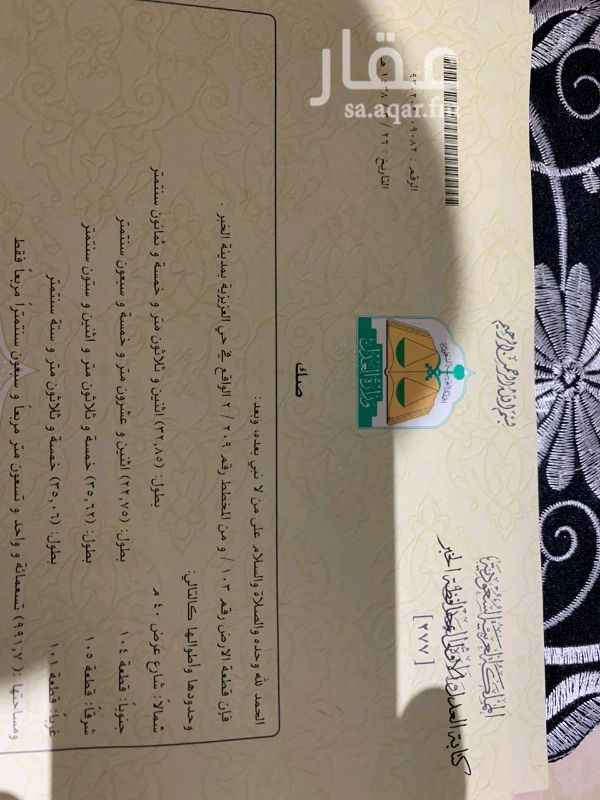 عقار
sa.aqar.fm
بسم الله الرحمن الرحيم
المملكة العربية السعودية
وزارة العدل
[٢٧٧]
كتابة العدل الأولى بمحافظة الخبر
الرقم :
التاريخ : ٢٩ /
صك
الحمد لله وحده والصلاة والسلام على من لا نبي بعده، وبعد:
فإن قطعة الارض رقم ١٠٣ / و من المخطط رقم ٢٠٩ / ٢ الواقع في حي العزيزية بمدينة الخبر .
وحدودها وأطوالها كالتالي:
شمالاً: شارع عرض ٤٠ م بطول: (٣٢,٨٥) اثنين و ثلاثون متر و خمسة و ثمانون سنتمتر
جنوباً: قطعة ١٠٤ بطول: (٢٢,٧٥) اثنين و عشرون متر و خمسة و سبعون سنتمتر
شرقاً: قطعة ١٠٥ بطول: (٣٥,٦٢) خمسة و ثلاثون متر و اثنين و ستون سنتمتر
غرباً: قطعة ١٠١ بطول: (٣٥,٠٦) خمسة و ثلاثون متر و ستة سنتمتر
ومساحتها : (٩٩١,٧) تسعمائة و واحد و تسعون متر مربعاً و سبعون سنتمتراً مربعاً فقط